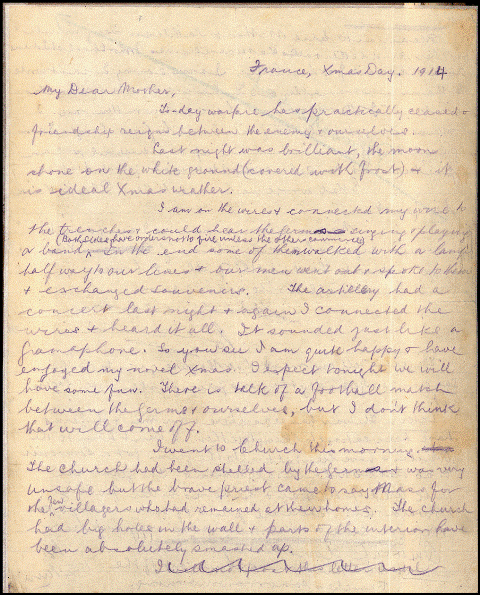 France, Xmas Day. 1914
My Dear Mother,
To-day warfare has practically ceased &
friendship reigns between the enemy & ourselves.
Last night was brilliant, the moon
shone on the white ground (covered with frost) & it
is ideal Xmas weather.
I am on the wires & connected my wire to
the trenches & could hear the Germs singing & playing
(Both sides have orders not to fire unless the others commence)
a band. In the end some of them walked with a lamp
half way to our lines & our men went out & spoke to them
& exchanged souvenirs. The artillery had a
concert last night & again I connected the
wires & heard it all. It sounded just like a
gramophone. So you see I am quite happy & have
enjoyed my novel Xmas. I expect tonight we will
have some fun. There is talk of a football match
between the Germs & ourselves, but I don't think
that will come off.
I went to Church this morning.
The church had been shelled by the Germs & was very
unsafe but the brave priest came to say Mass for
the few villagers who had remained at their homes. The church
had big holes in the wall & parts of the interior have
been absolutely smashed up.